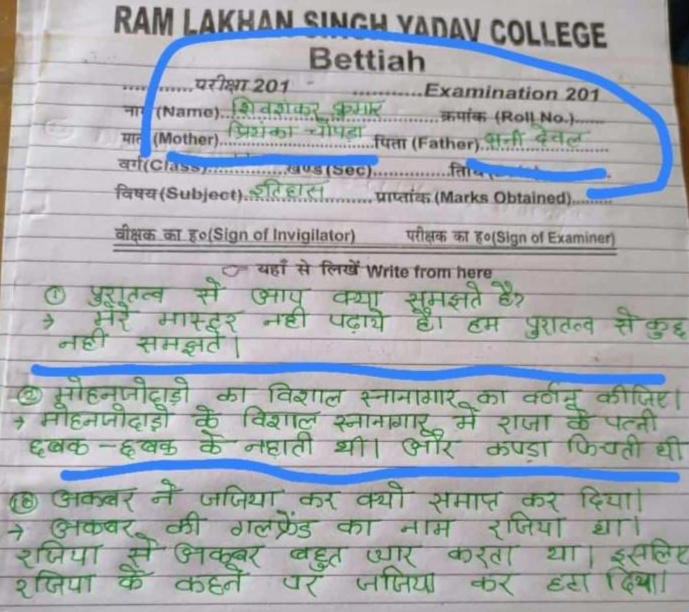 RAM LAKHAN SINGH YADAV COLLEGE
Bettiah
............परीक्षा 201 ............Examination 201
नाम (Name)..शिवशंकर कुमार क्रमांक (Roll No.)......
माता (Mother) प्रियंका चोपड़ा पिता (Father).सनी देवल
वर्ग(Class)............खण्ड(Sec)............
विषय(Subject)..इतिहास प्राप्तांक (Marks Obtained)........
वीक्षक का ह०(Sign of Invigilator) परीक्षक का ह०(Sign of Examiner)
☞ यहाँ से लिखें Write from here
① पुरातत्व से आप क्या समझते है?
→ मेरे मास्टर नही पढ़ाये है। हम पुरातत्व से कुछ
नही समझते।
② मोहनजोदाड़ो का विशाल स्नानागार का वर्णन कीजिए।
→ मोहनजोदाड़ो के विशाल स्नानागार में राजा के पत्नी
छबक - छबक के नहाती थी। और कपड़ा फिचती थी
⑱ अकबर ने जजिया कर क्यो समाप्त कर दिया।
→ अकबर की गलफ्रेंड का नाम रजिया था।
रजिया से अकबर बहुत प्यार करता था। इसलिए
रजिया के कहने पर जजिया कर हटा दिया।